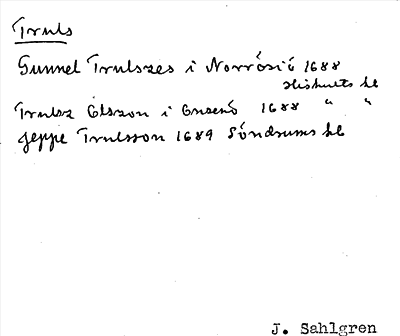 Truls
Gunnel Trulszes i Norrösiö 1688
Hishults kb
Trulsz Elszon i Enseö 1688 " "
Jeppe Trulsson 1689 Söndrums kb
J. Sahlgren